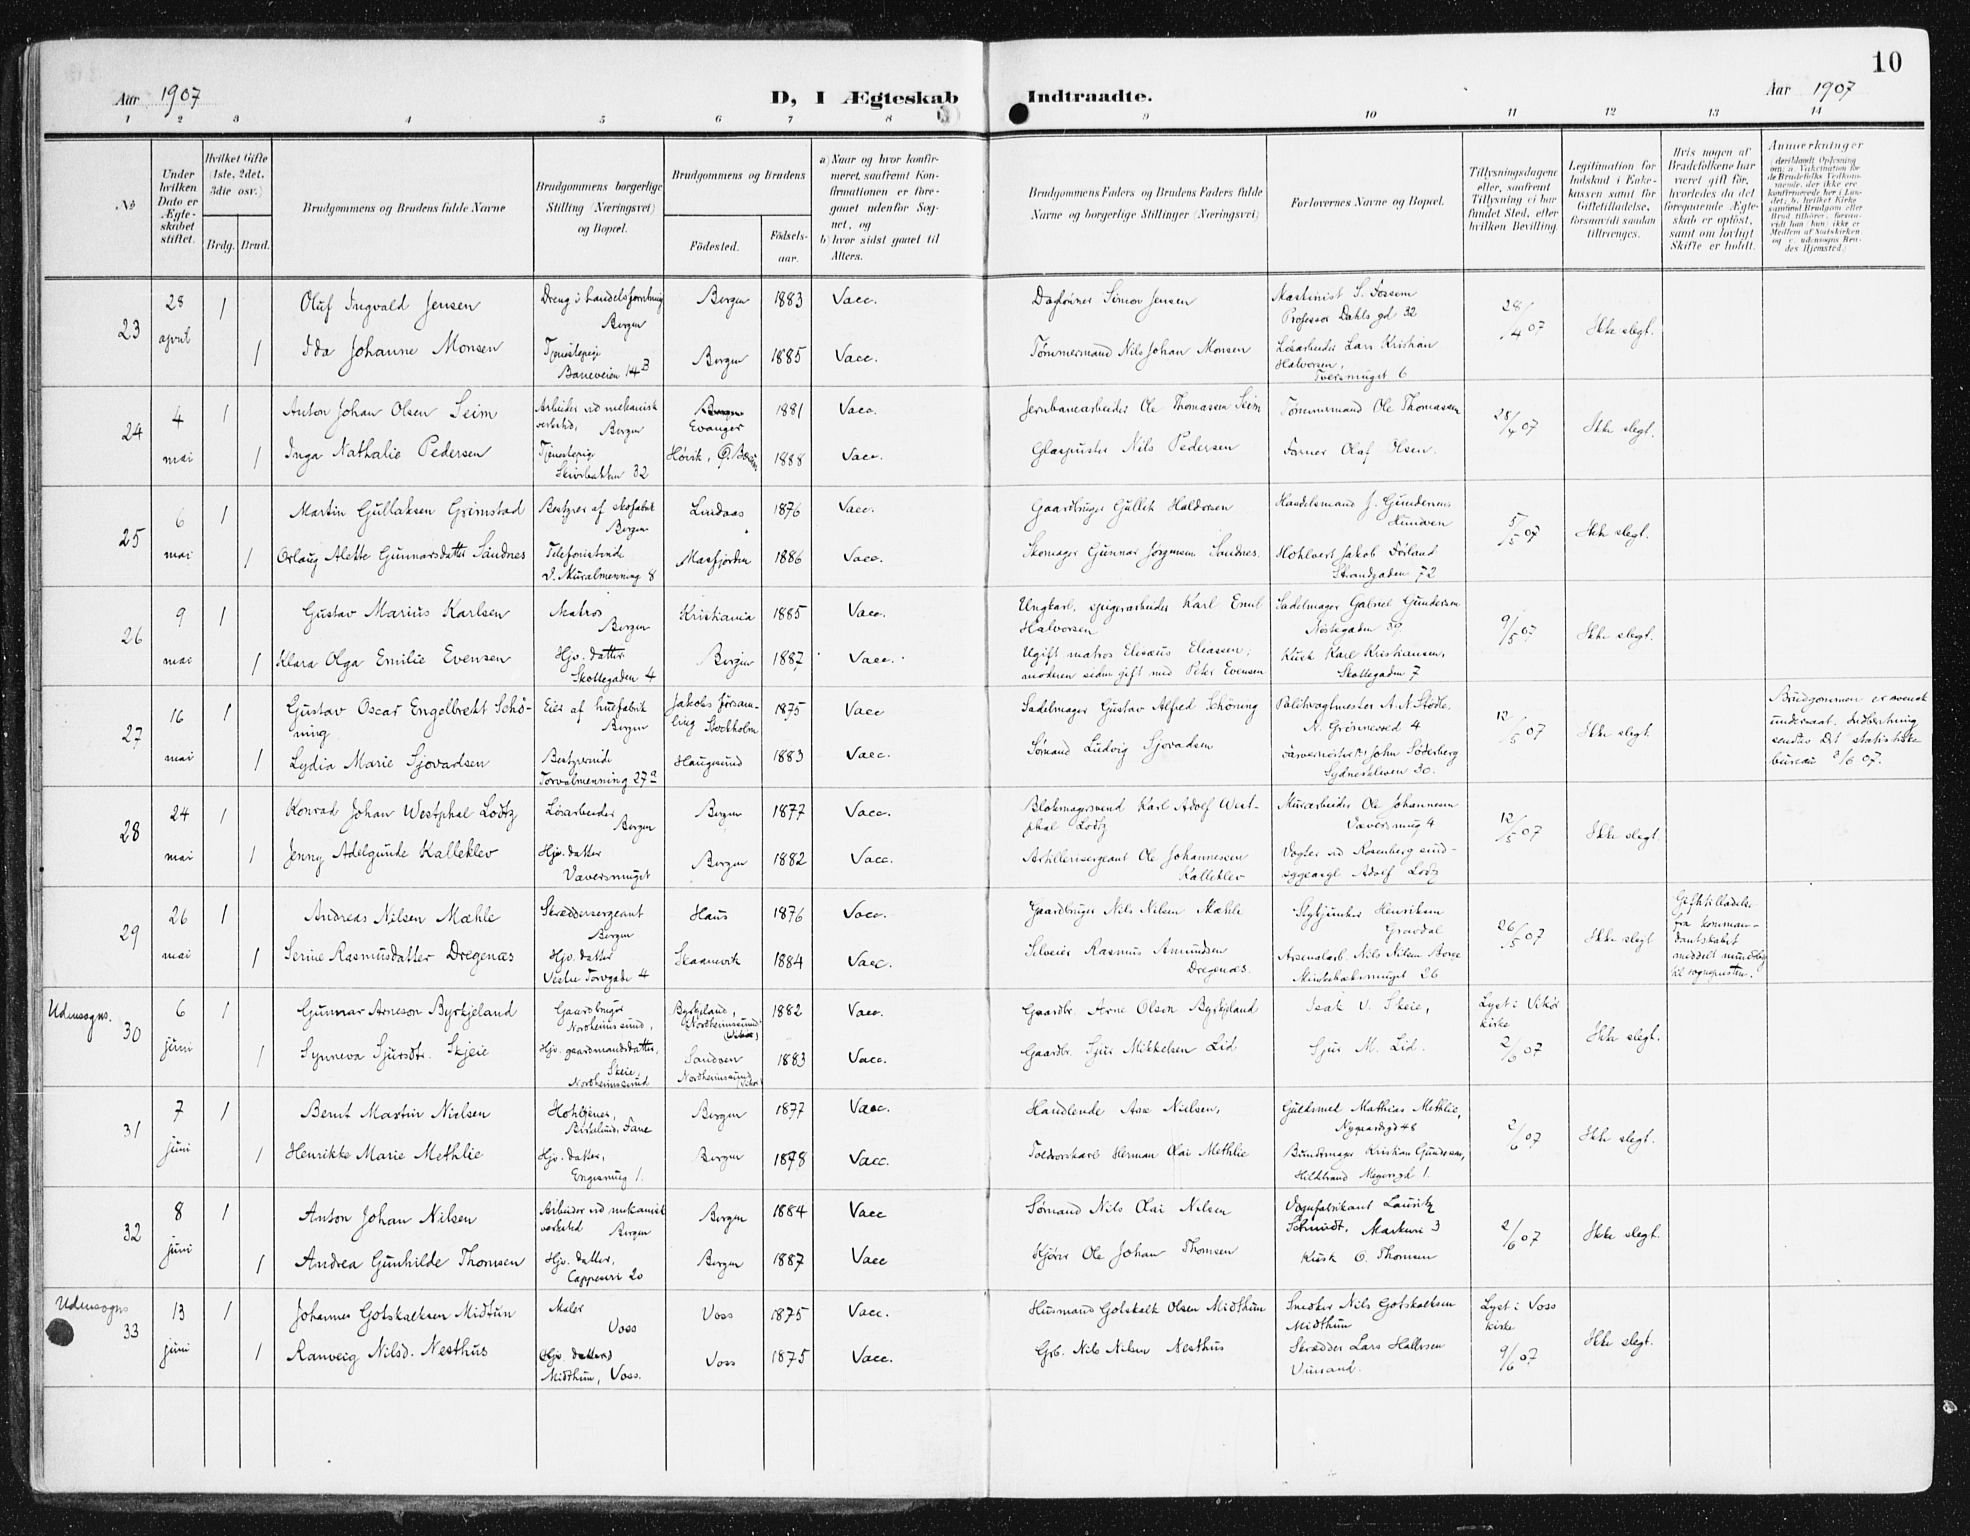 10
Aar 1907
D, I Ægteskab Indtraadte.
Aar 1907
1 2 3 4 5 6 7 8 9 10 11 12 13 14
No
Under hvilken Dato er Ægteskabet stiftet.
Hvilket Gifte (1ste, 2det, 3die osv.)
Brdg. Brud.
Brudgommens og Brudens fulde Navne
Brudgommens borgerlige Stilling (Næringsvei) og Bopæl.
Brudgommens og Brudens
Fødested.
Fødsels-aar.
a) Naar og hvor konfirmeret, saafremt Konfirmationen er foregaaet udenfor Sognet, og
b) hvor sidst gaaet til Alters.
Brudgommens Faders og Brudens Faders fulde Navne og borgerlige Stillinger (Næringsvei)
Forlovernes Navne og Bopæl.
Tillysningsdagene eller, saafremt Tillysning ei har fundet Sted, efter hvilken Bevilling.
Legitimation for Indskud i Enkekassen samt for Giftetilladelse, forsaavidt saadan tiltrænges.
Hvis nogen af Brudefolkene har været gift før, hvorledes da det foregaaende Ægteskab er opløst, samt om lovligt Skifte er holdt.
Anmerkninger
23
28 april
1 Oluf Ingvald Jensen
Bergen
Bergen 1883 Vacc.
Dagtønner Simon Jensen
Maskinist S. Fossem
Professor Dahls gd 32
28/4 07
Ikke slegt.
1 Ida Johanne Monsen
Tjenestepige
Baneveien 14 B
Bergen 1885 Vacc.
Tømmermand Nils Johan Monsen
Løsarbeider Lars Kristian Halvorsen,
Tversmuget 6
24
4 mai
1 Anton Johan Olsen Seim
Arbeider ved mekanisk verksted, Bergen
Evanger 1881 Vacc.
Jernbanearbeider Ole Thomassen Seim
Tømmermand Ole Thomassen
28/4 07
Ikke slegt.
1 Inga Nathalie Pedersen
Tjenestepige
Skivebakken 32
Høvik, 1888 Vacc.
Glaspuster Nils Pedersen
Former Olaf Olsen.
25
6 mai
1 Martin Gullaksen Grimstad
Bestyrer af skofabrik
Bergen
Lindaas 1876 Vacc.
Gaardbruger Gullik Haldorsen
Handelsmand J. Gundersen
5/5 07
Ikke slegt.
1 Orlaug Alette Gunnarsdatter Sandnes
Telefonistinde
V. Muralmenning 8
Masfjorden 1886 Vacc.
Skomager Gunnar Jørgensen Sandnes.
Jakob Førland
Strandgaden 72
26
9 mai
1 Gustav Marius Karlsen
Matros
Bergen
Kristiania 1885 Vacc.
Ungkarl, spigerarbeider Karl Emil Halvorsen
Sadelmager Gabriel Gundersen
Nøstegaden 39
9/5 07
Ikke slegt.
1 Klara Olga Emilie Evensen
Hjv. datter
Skottegaden 4
Bergen 1887 Vacc.
Ugift matros Elisæus Eliassen,
moderen siden gift med Peter Evensen
Kusk Karl Kristiansen,
Skottegaden 7
27
16 mai
1 Gustav Oscar Engelbrekt Schöning
Eier af hatfabrik
Bergen
Jakobs församling Stockholm 1875 Vacc
Sadelmager Gustav Alfred Schöning
Politivagtmester A. N. Stødle,
N. Grønnevold 4
12/5 07
Ikke slegt.
Brudgommen er svensk undersaat. Indberetning sendes Det statistiske bureau 3/6 07.
1 Lydia Marie Sjovadsen
Bestyrerinde
Torvalmenning 27a
Haugesund 1883 Vacc.
Sømand Ludvig Sjovadsen
Farvermester John Söderberg
Sydneskleven 30.
28
24 mai
1 Konrad Johan Westphal Lodtz
Løsarbeider
Bergen
Bergen 1877 Vacc.
Blokmagersvend Karl Adolf Westphal Lodtz
Murarbeider Ole Johannesen
Væversmug 4
12/5 07
Ikke slegt.
1 Jenny Adelgunde Kalleklev
Hjv. datter
Væversmuget
Bergen 1882 Vacc.
Artillerisergeant Ole Johannessen Kalleklev
Vogter ved Rosenberg sindssygeasyl Adolf Lodtz
29
26 mai
1 Andreas Nilsen Mæhle
Skræddersergeant
Bergen
Haus 1876 Vacc.
Gaardbruger Nils Nilsen Mæhle
Stykjunker Henriksen
Gravdal
26/5 07
Ikke slegt
Giftetilladelse fra kommandantskabet meddelt mundtlig til sognepresten.
1 Serine Rasmusdatter Dregenæs
Hjv. datter
Vestre Torvgade 4
Skaanevik 1884 Vacc.
Selveier Rasmus Amundsen
Dregenæs.
Arsenalarb. Nils Nilsen Borge
26
Udensogns.
30
6 juni
1 Gunnar Arneson Byrkjeland
Gaardbruger
Nordheimsund,
Byrkjeland, Nordheimsund (Vikør) 1882 Vacc.
Gaardbr. Arne Olsen Byrkjeland
Isak V. Skeie,
Lyst i Vikør kirke
2/6 07
Ikke slegt.
1 Synneva Sjursdtr. Skjeie
Hjv. gaardmandsdatter,
Skeie,
Nordheimsund
Sandven Nordheimsund (Vikør) 1883 Vacc.
Gaardbr. Sjur Mikkelsen Lid
Sjur M. Lid.
31
7 juni
1 Bernt Martin Nielsen
Birkelund, Fane
Bergen 1877 Vacc.
Handlende Ase Nielsen,
Guldsmed Mathias Methlie,
Nygaardsgd 48
2/6 07
Ikke slegt.
1 Henrikke Marie Methlie
Hjv. datter,
Engesmug 1.
Bergen 1878 Vacc.
Toldorskarl Herman Olai Methlie
Bundtmager Kristian Gundersen,
Hiltbrand Meyersgd 1.
32
8 juni
1 Anton Johan Nilsen
Arbeider ved mekanisk verksted
Bergen
Bergen 1884 Vacc
Sømand Nils Olai Nilsen
Vognfabrikant Lauritz
Schmidt, Markevei 3
2/6 07
Ikke slegt.
1 Andrea Gunhilde Thomsen
Hjv. datter,
Cappesvei 20
Bergen 1887 Vacc
Kjører Ole Johan Thomsen
Kusk O. Thomsen
Udensogns
33
13 juni
1 Johannes Gotskalksen Midtun
Maler
Voss
Voss 1875 Vacc.
Husmand Gotskalk Olsen Midthun
Snedker Nils Gotskalksen
Midthun
Lyst i Voss kirke
9/6 07
Ikke slegt.
1 Ranveig Nilsd. Nesthus
(Hjv. datter)
Midthun, Voss.
Voss 1875 Vacc.
Grb. Nils Nilsen Nesthus
Skrædder Lars Hallesen
Vinsand.